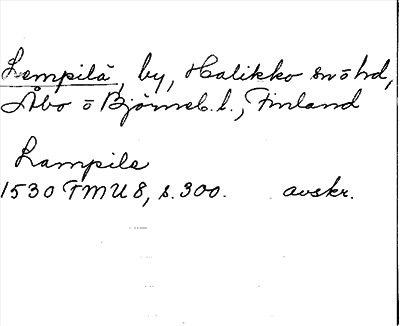 Lempilä, by, Halikko sn o hd,
Åbo o Björneb. l., Finland
Lampile
1530 FMU 8, s. 300. avskr.